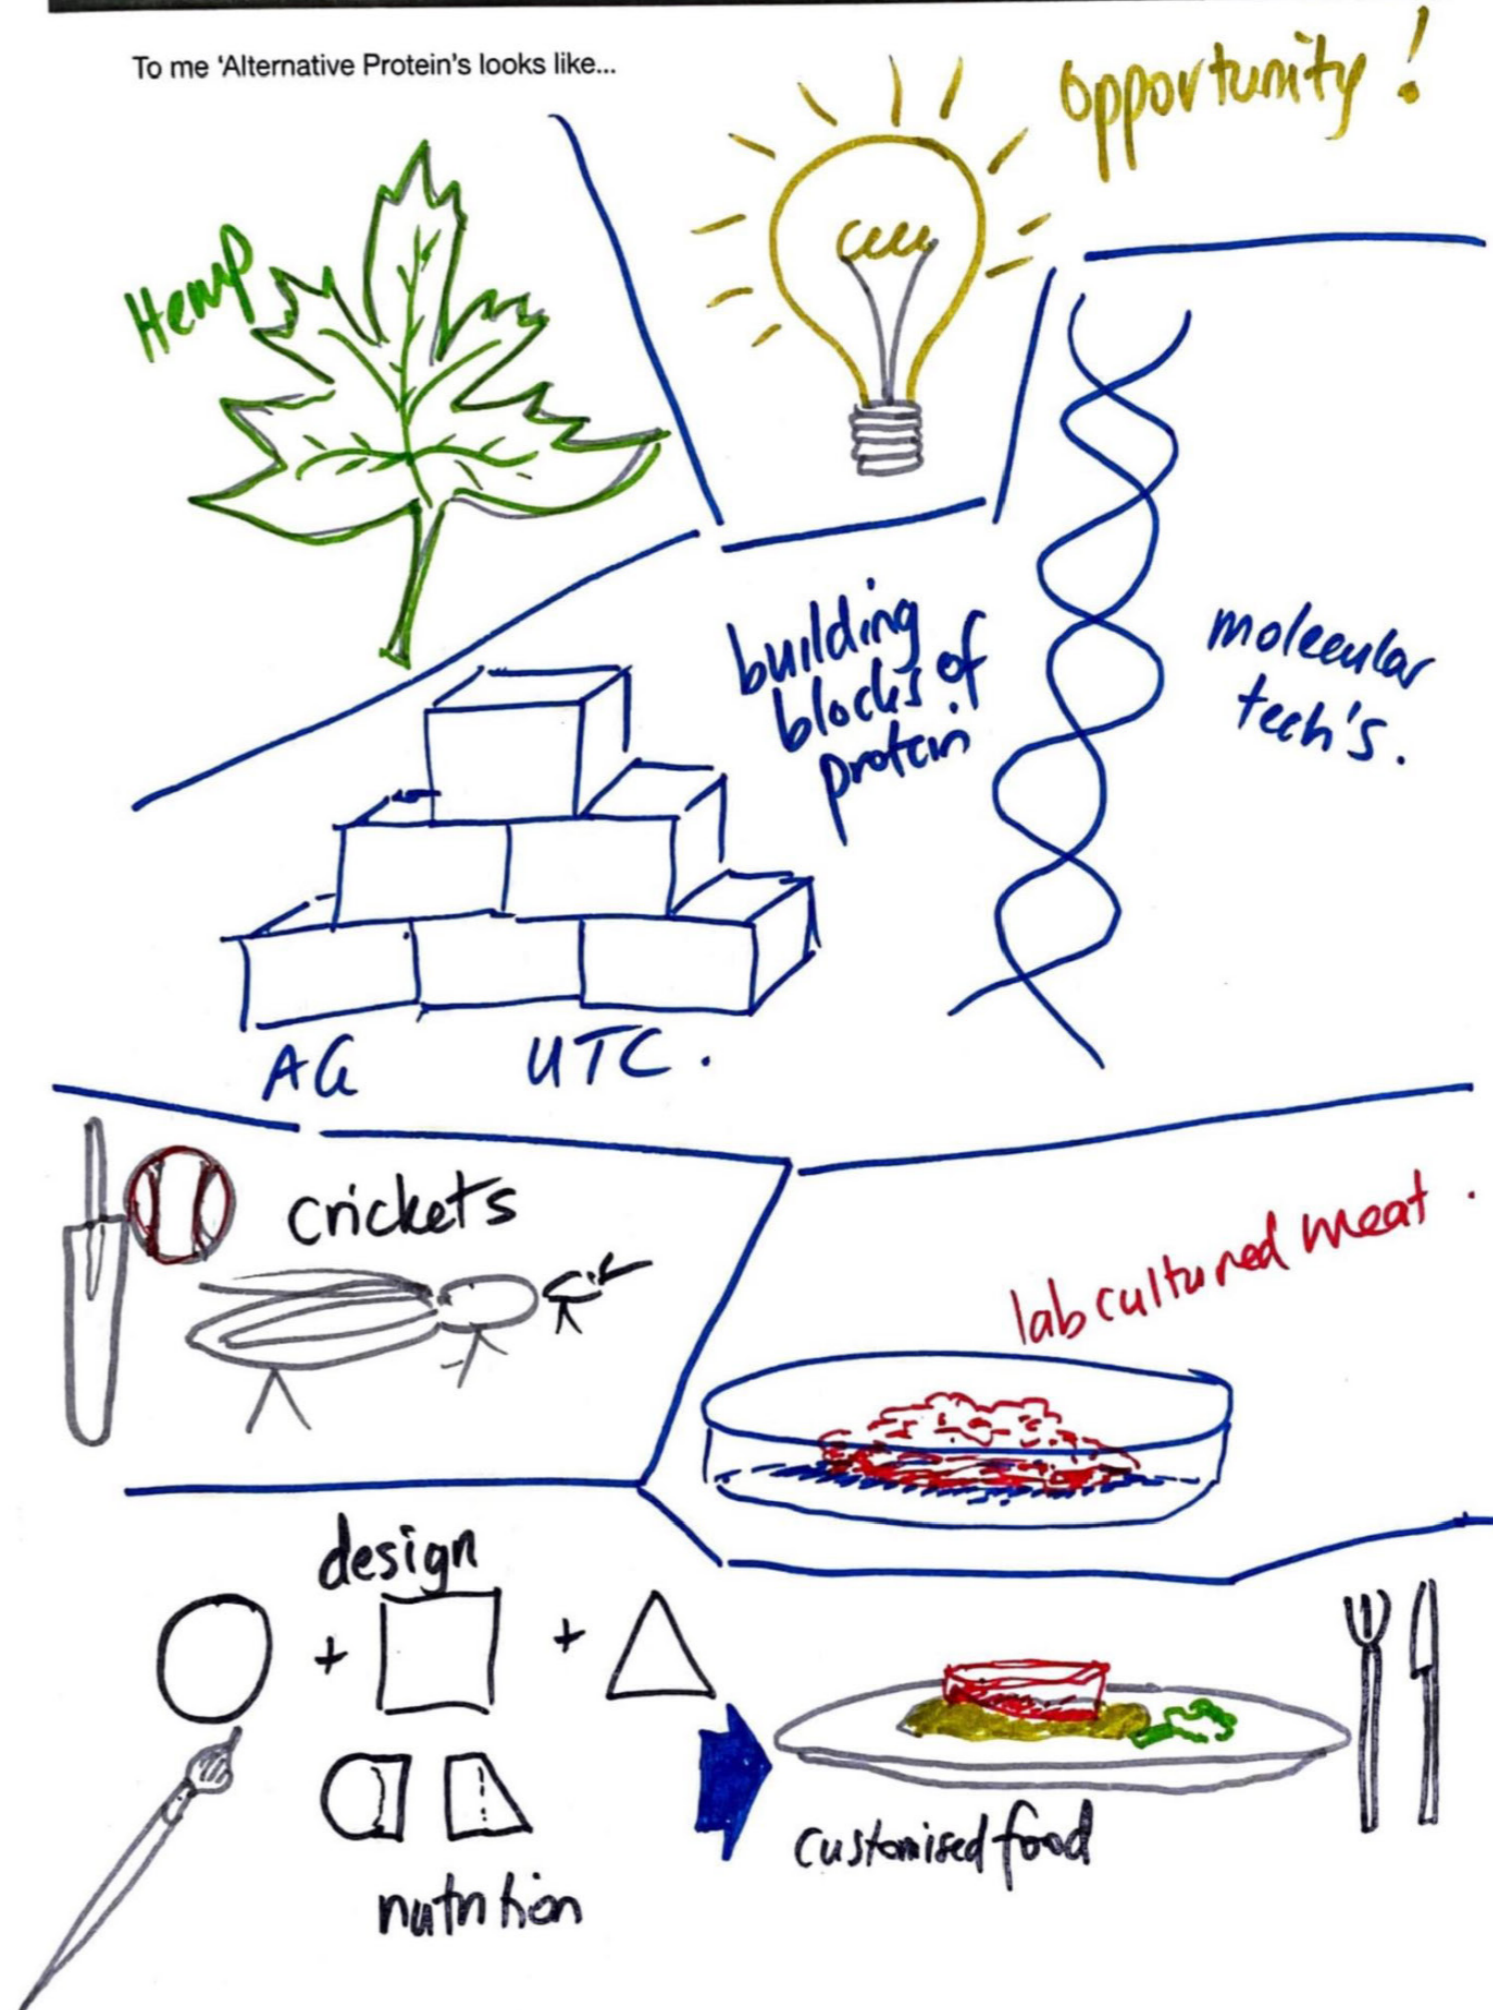 To me 'Alternative Protein's looks like...
Opportunity!
Hemp
building
blocks of
protein
molecular
tech's.
AG UTC.
crickets
lab cultured meat.
design
+ +
nutrition
customised food